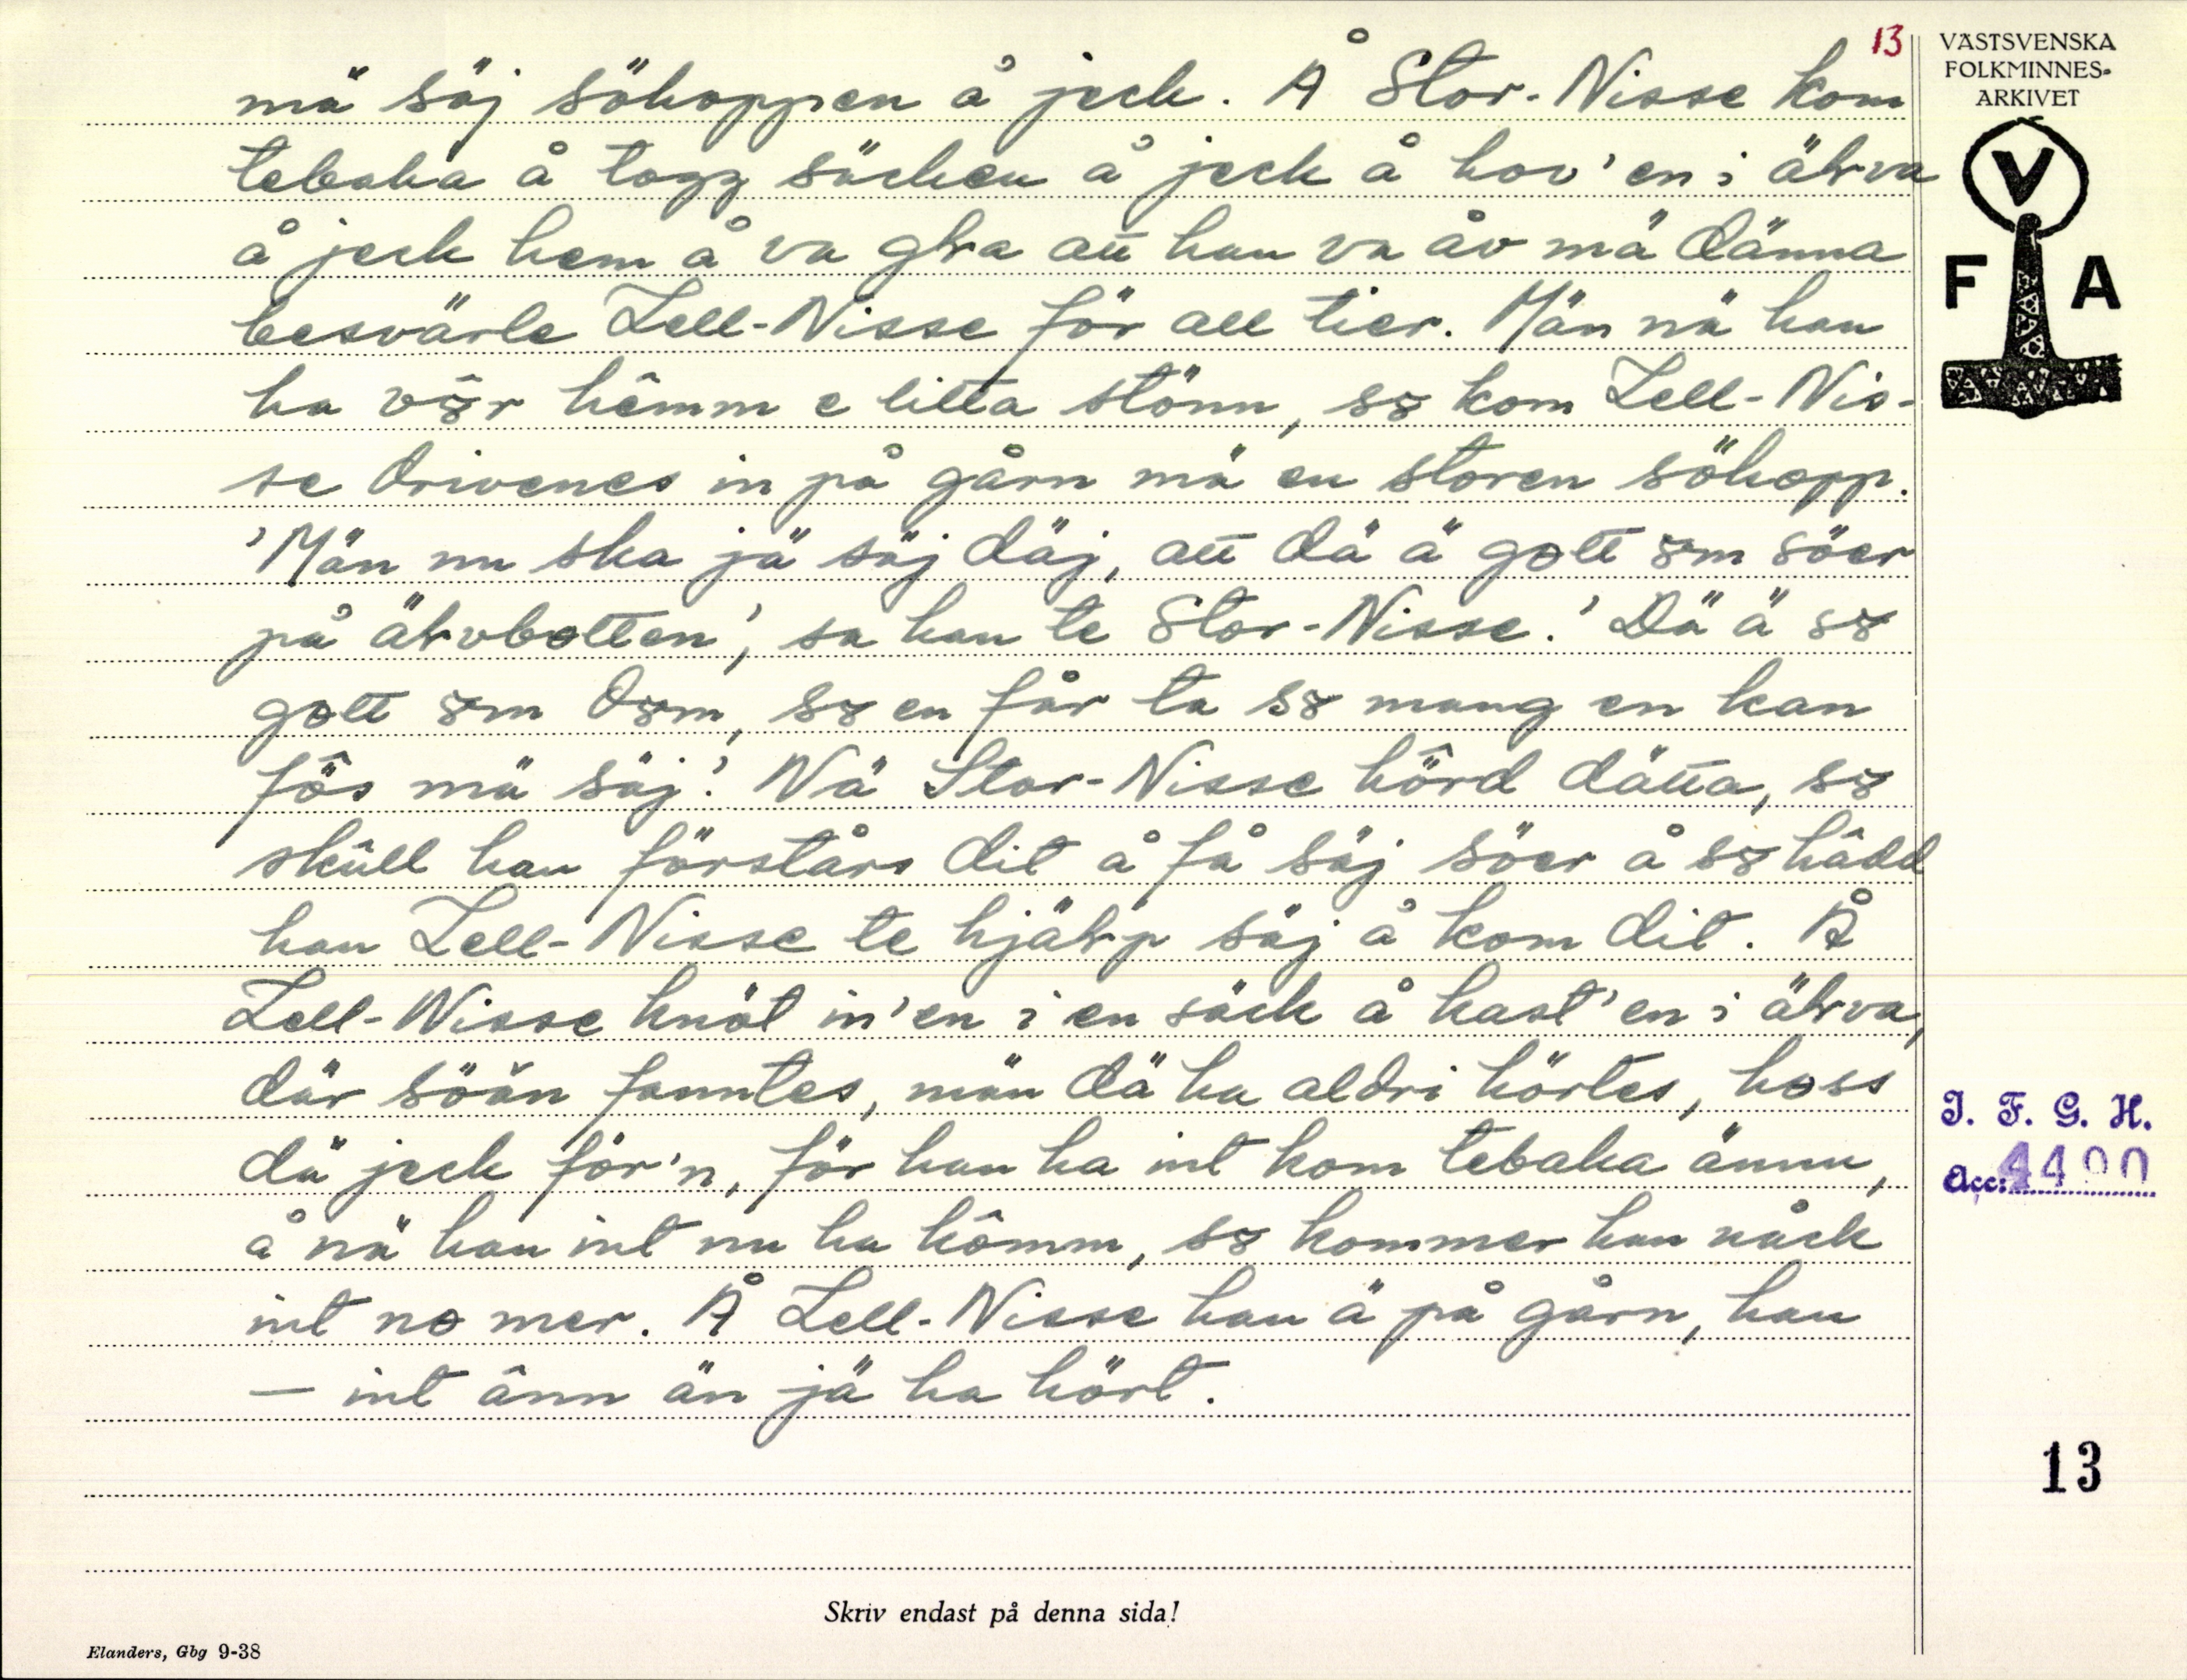 13
VÄSTSVENSKA
FOLKMINNES-
ARKIVET
V
F A
mä säj söhoppen å jeck. Å Stor-Nisse kom
tebaka å togg säcken å jeck å hov'en i älva
å jeck hem å va gla att han va åv mä dänna
besvärle Lell-Nisse för all tier. Män nä han
ha vôr hêmm e litta stönn, sô kom Lell-Nis-
se drivenes in på gårn mä en storen söhopp.
'Män nu ska jä säj däj, att dä ä gott ôm söer
på älvbotten', sa han te Stor-Nisse. 'Dä ä sô
gott ôm dôm, sô en får ta sô mang en kan
fôs mä säj.' Nä Stor-Nisse hôrd dätta, sô
skûll han förstårs dit å få säj söer å sô hâdd
han Lell-Nisse te hjälp säj å kom dit. Å
Lell-Nisse knöt in'en i en säck å kast'en i älva,
där söän fanntes, män dä ha aldri hörtes, hoss
dä jeck för'n, för han ha int kom tebaka ännu,
å nä han int nu ha kômm, sô kommer han nåck
int no mer. Å Lell-Nisse han ä på gårn, han
— int ânn än jä ha hört.
I. F. G. H.
Acc: 4400
13
Skriv endast på denna sida!
Elanders, Gbg 9-38